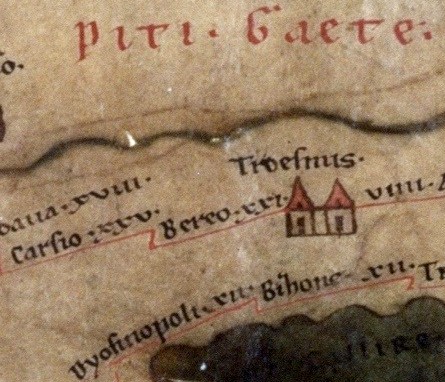 piti. Gaete.
Troesmis.
daua.xviii.
Carsio.xxv.
Bereo.xxi.
viiii.
Dyosinopoli.xii.
Bihone.xii.